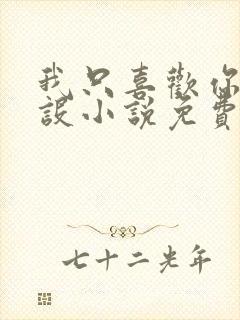 我只喜歡你
設小說免費
七十二光年